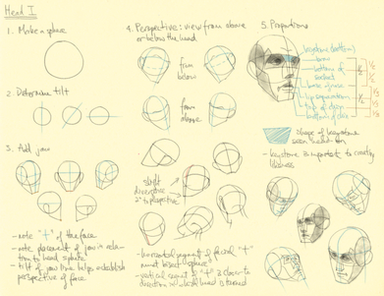 Head I
1. Make a sphere
2. Determine tilt
3. Add jaw
- note "+" of the face
- note placement of jaw in rela-
tion to head sphere
- tilt of jaw line helps establish
perspective of face
4. Perspective: view from above
or below the head
from
below
from
above
- horizontal segment of facial "+"
must bisect sphere
- vertical segment of "+" is closer to
direction in which head is turned
5. Proportions
keystone (bottom)
brow
bottom of
socket
base of nose
lip separation
top of chin
bottom of chin
shape of keystone
seen head-on
- keystone is important to creating